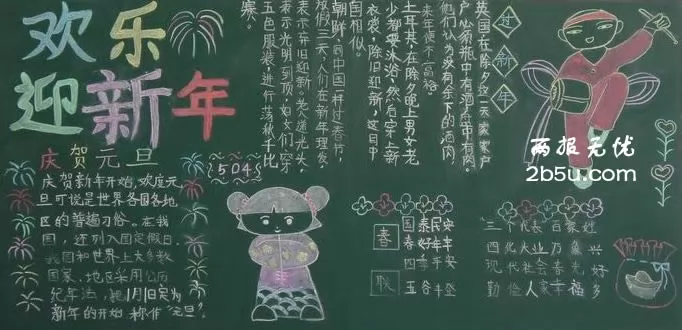 欢乐
迎新年
庆贺元旦
庆贺新年开始,欢度元
旦可说是世界各国各地
区的普遍习俗。在我
国,还列入国定假日,
我国和世界上大多数
国家、地区采用公历
纪年法,把1月1日定为
新年的开始,称作"元旦"。
504
过新年
英国在除夕这一天,家家户
户必须瓶中有酒,橱中有肉。
他们认为没有余下的酒肉,
来年便不富裕。
上耳其:在除夕晚上男女老
少都要沐浴,然后穿上新
衣袋,除旧迎新,这日中
国相似。
朝鲜:同中国一样过春节,
放假三天,人们在新年理发,
表示辞旧迎新。老人
表示光明到顶,妇女们穿
五色服装,进行荡秋千比
赛。
春
联
国泰民安
春好年丰
四季平安
五谷丰登
三个代表百家姓
四化大业万象兴
现代社会春光好
勤俭人家幸福多
两报无优
2b5u.com